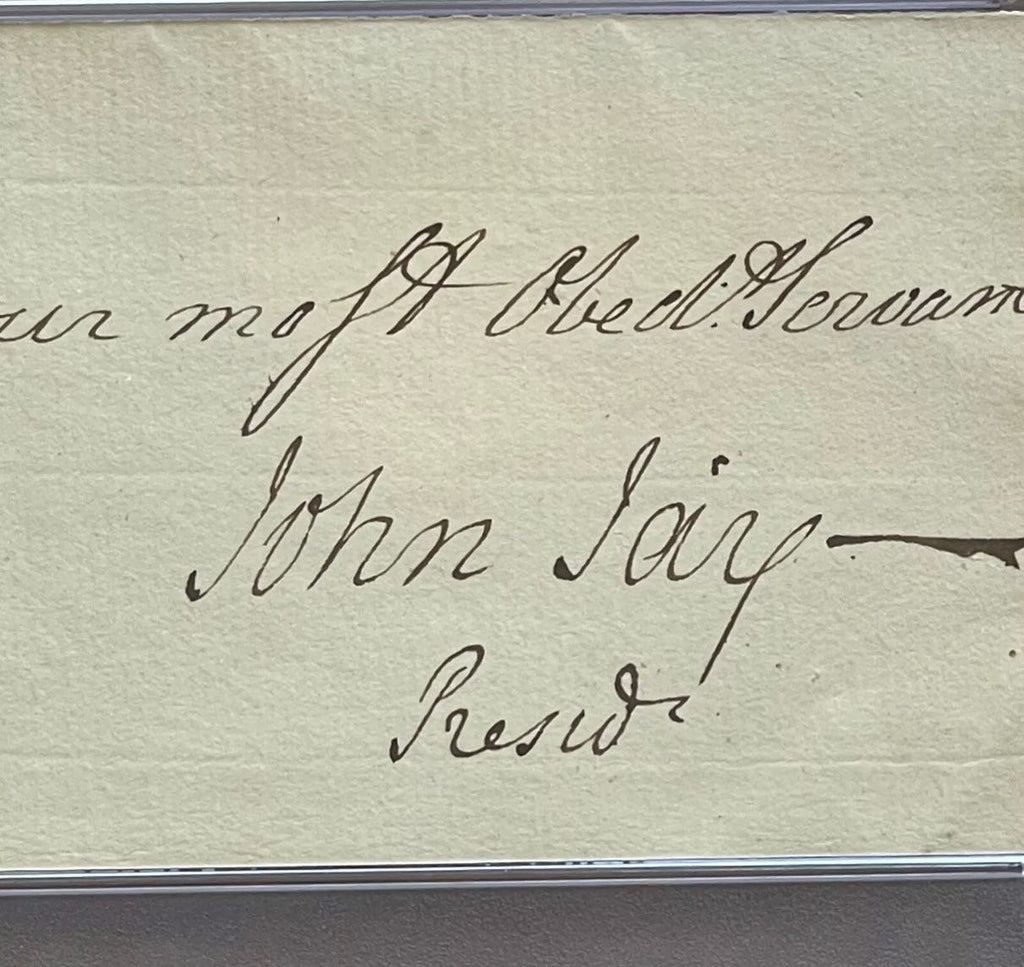 ur moſt Obed.t Servan
John Jay
Presidt